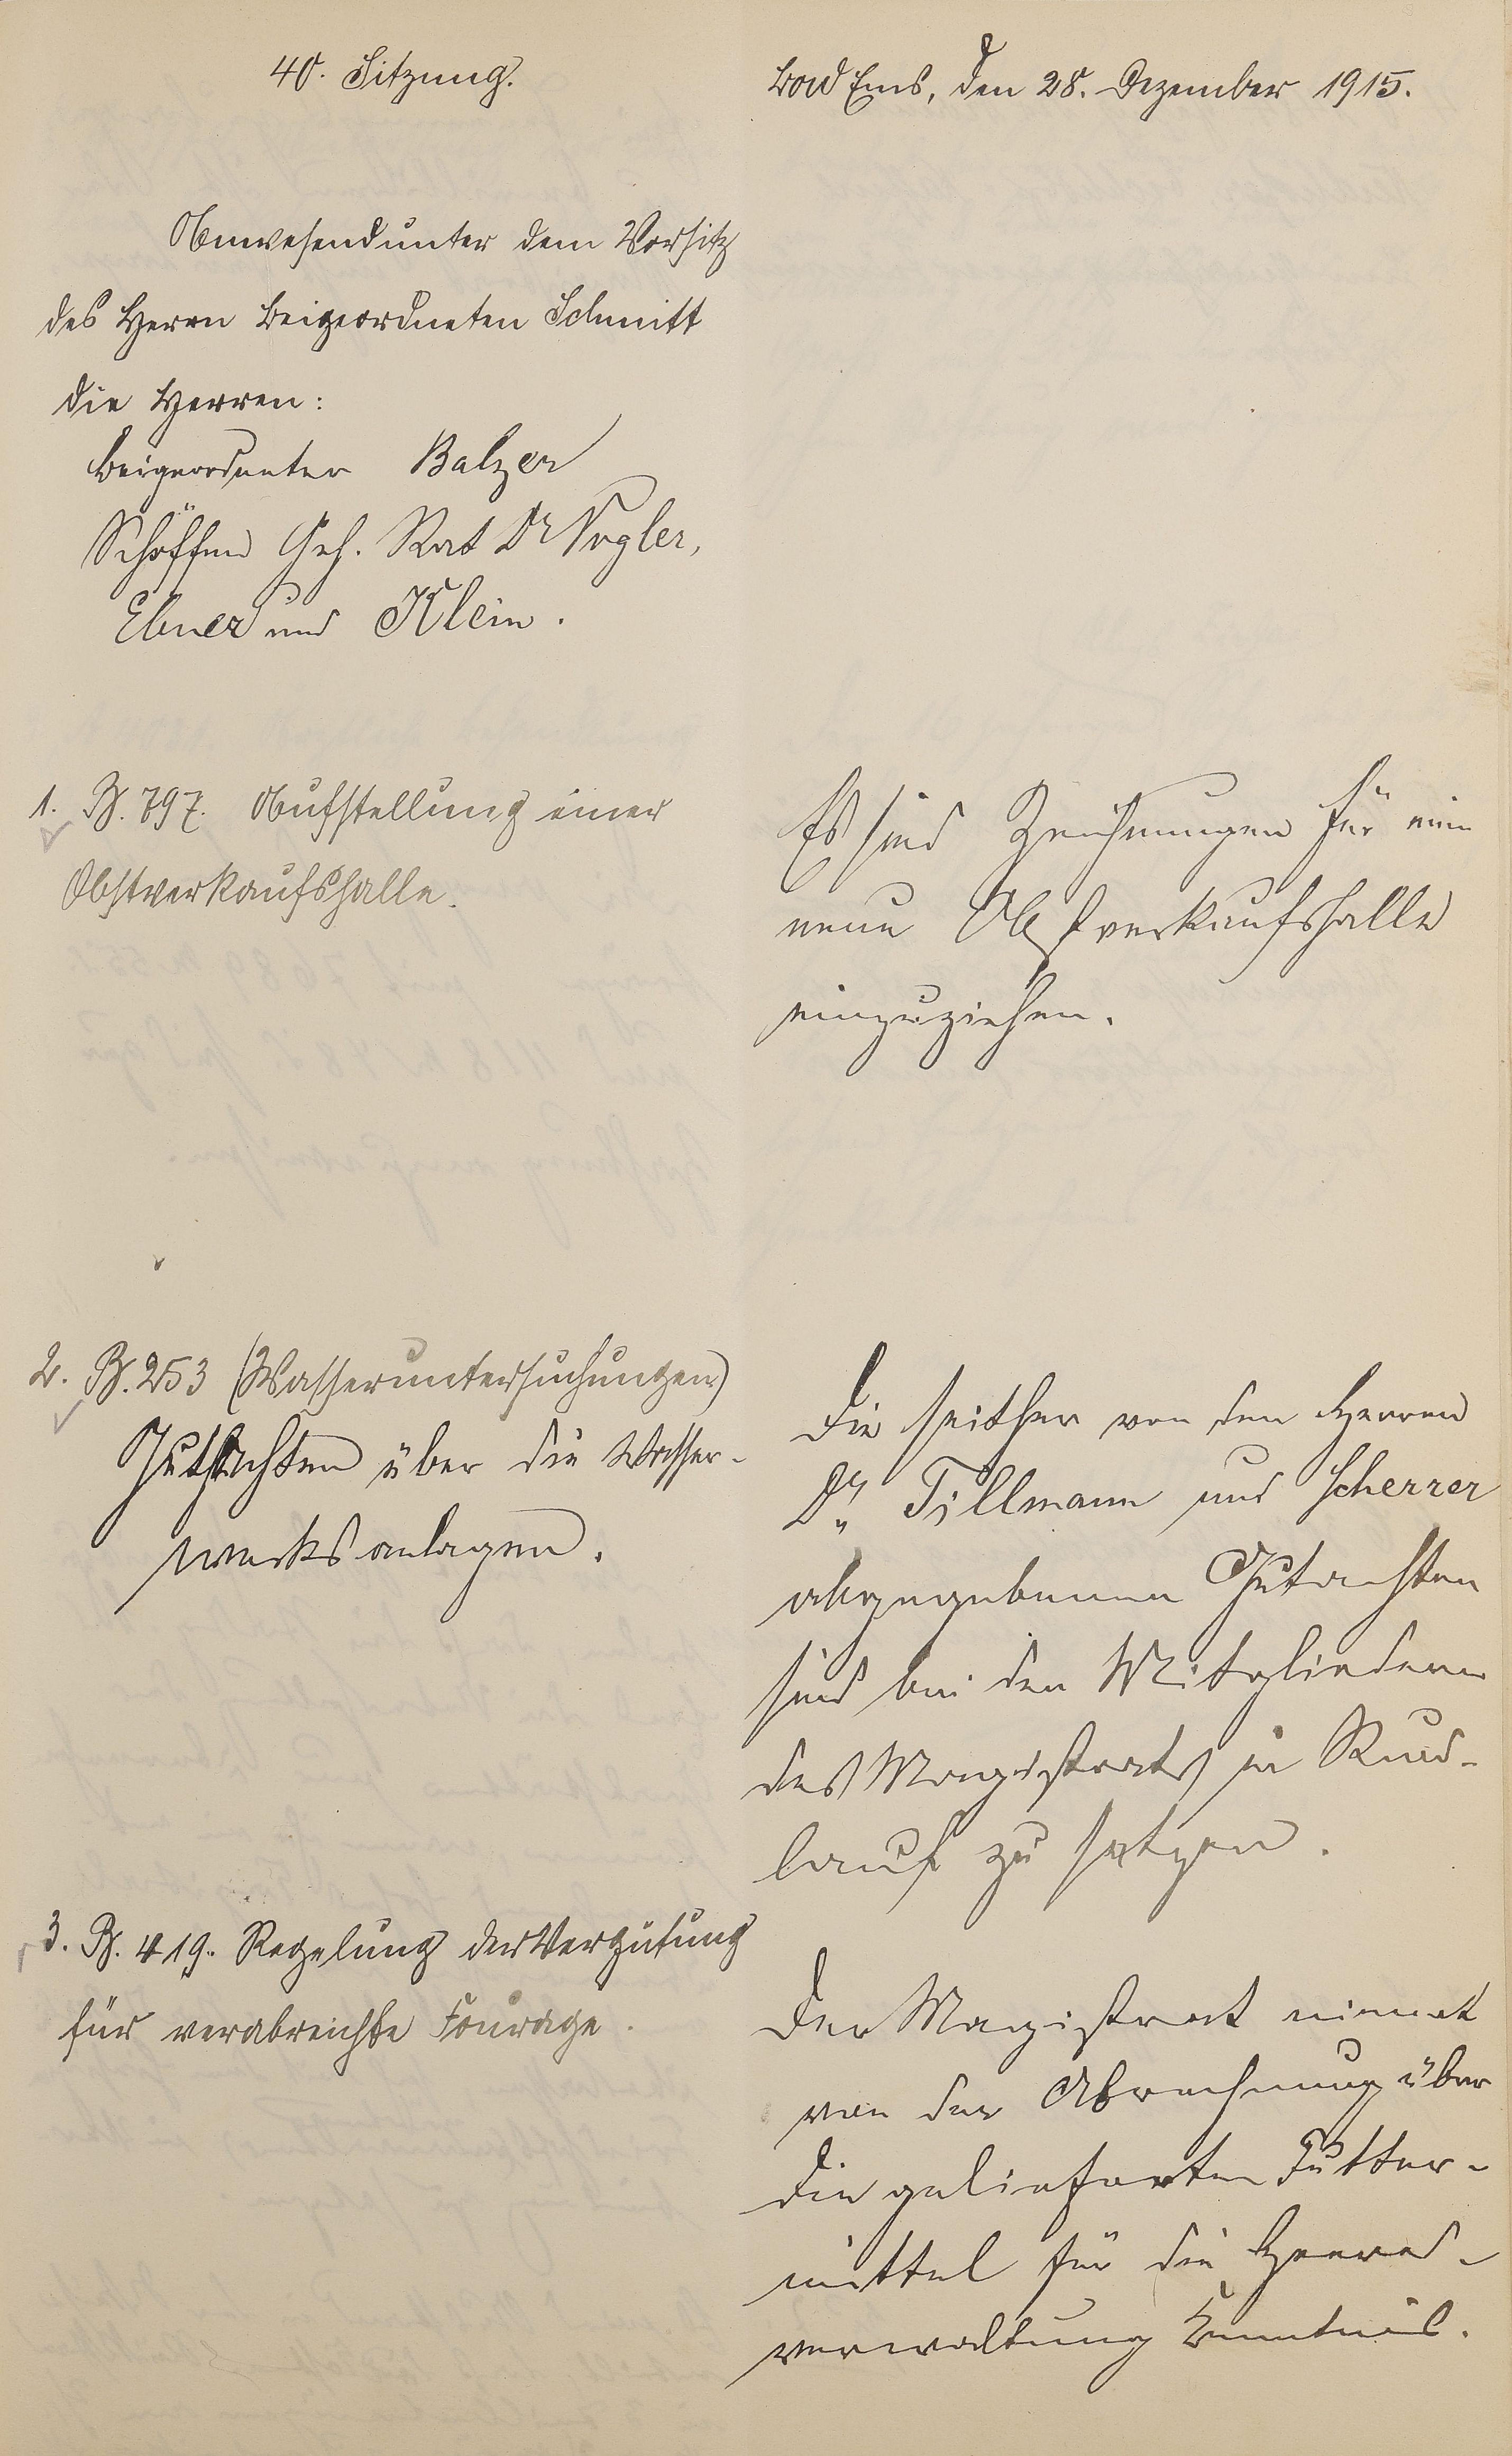 40. Sitzung.
Bad Ems, den 28. Dezember 1915.
Anwesend unter dem Vorsitz
des Herrn Beigeordneten Schmitt
die Herren:
Beigeordneter Balzer
Schöffen Geh. Rat Dr Vogler,
Ebner und Klein.
1. B. 797. Aufstellung einer
Obstverkaufshalle.
Es sind Zeichnungen für eine
neue Obstverkaufshalle
einzuziehen.
2. B. 253 (Wasseruntersuchungen)
Gutachten über die Wasser-
werksanlagen.
Die seither von den Herren
Dr. Tillmann und Scherrer
abgegebenen Gutachten
sind bei den Mitgliedern
des Magistrats in Rund-
lauf zu setzen.
3. B. 419. Regelung der Vergütung
für verabreichte Fourage.
Der Magistrat nimmt
von der Abrechnung über
die gelieferten Futter-
mittel für die Heeres-
verwaltung Kenntnis.